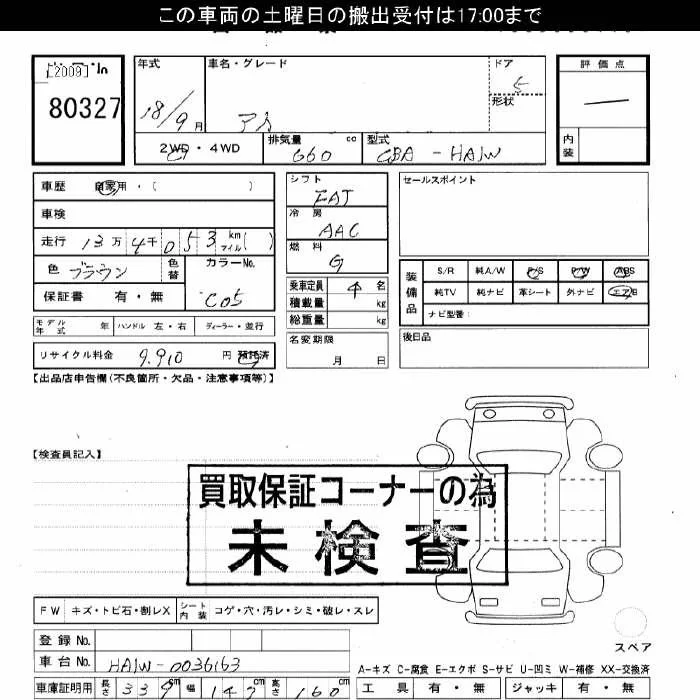 この車両の土曜日の搬出受付は17:00まで
[2009]
80327
年式
18/9月
車名・グレード
アイ
ドア
5
形状
評価点
内装
2WD・4WD
排気量 660 cc
型式 CBA-HA1W
車歴 自家用・( )
車検
走行 13万4千053 km マイル( )
色 ブラウン 色替
カラーNo. C05
保証書 有・無
モデル年式 年 ハンドル 左・右 ディーラー・並行
リサイクル料金 9,910 円 預託済
シフト FAT
冷房 AAC
燃料 G
乗車定員 4 名
積載量 kg
総重量 kg
名変期限 月 日
セールスポイント
装備品
S/R 純A/W P/S P/W ABS
純TV 純ナビ 革シート 外ナビ エアB
ナビ型番:
後日品
【出品店申告欄(不良箇所・欠品・注意事項等)】
【検査員記入】
買取保証コーナーの為
未検査
FW キズ・トビ石・割レX シート内装 コゲ・穴・汚レ・シミ・破レ・スレ
スペア
登録No.
車台No. HA1W-0036163
A-キズ C-腐食 E-エクボ S-サビ U-凹ミ W-補修 XX-交換済
車庫証明用 長さ 339cm 幅 147cm 高さ 160cm
工具 有・無 ジャッキ 有・無